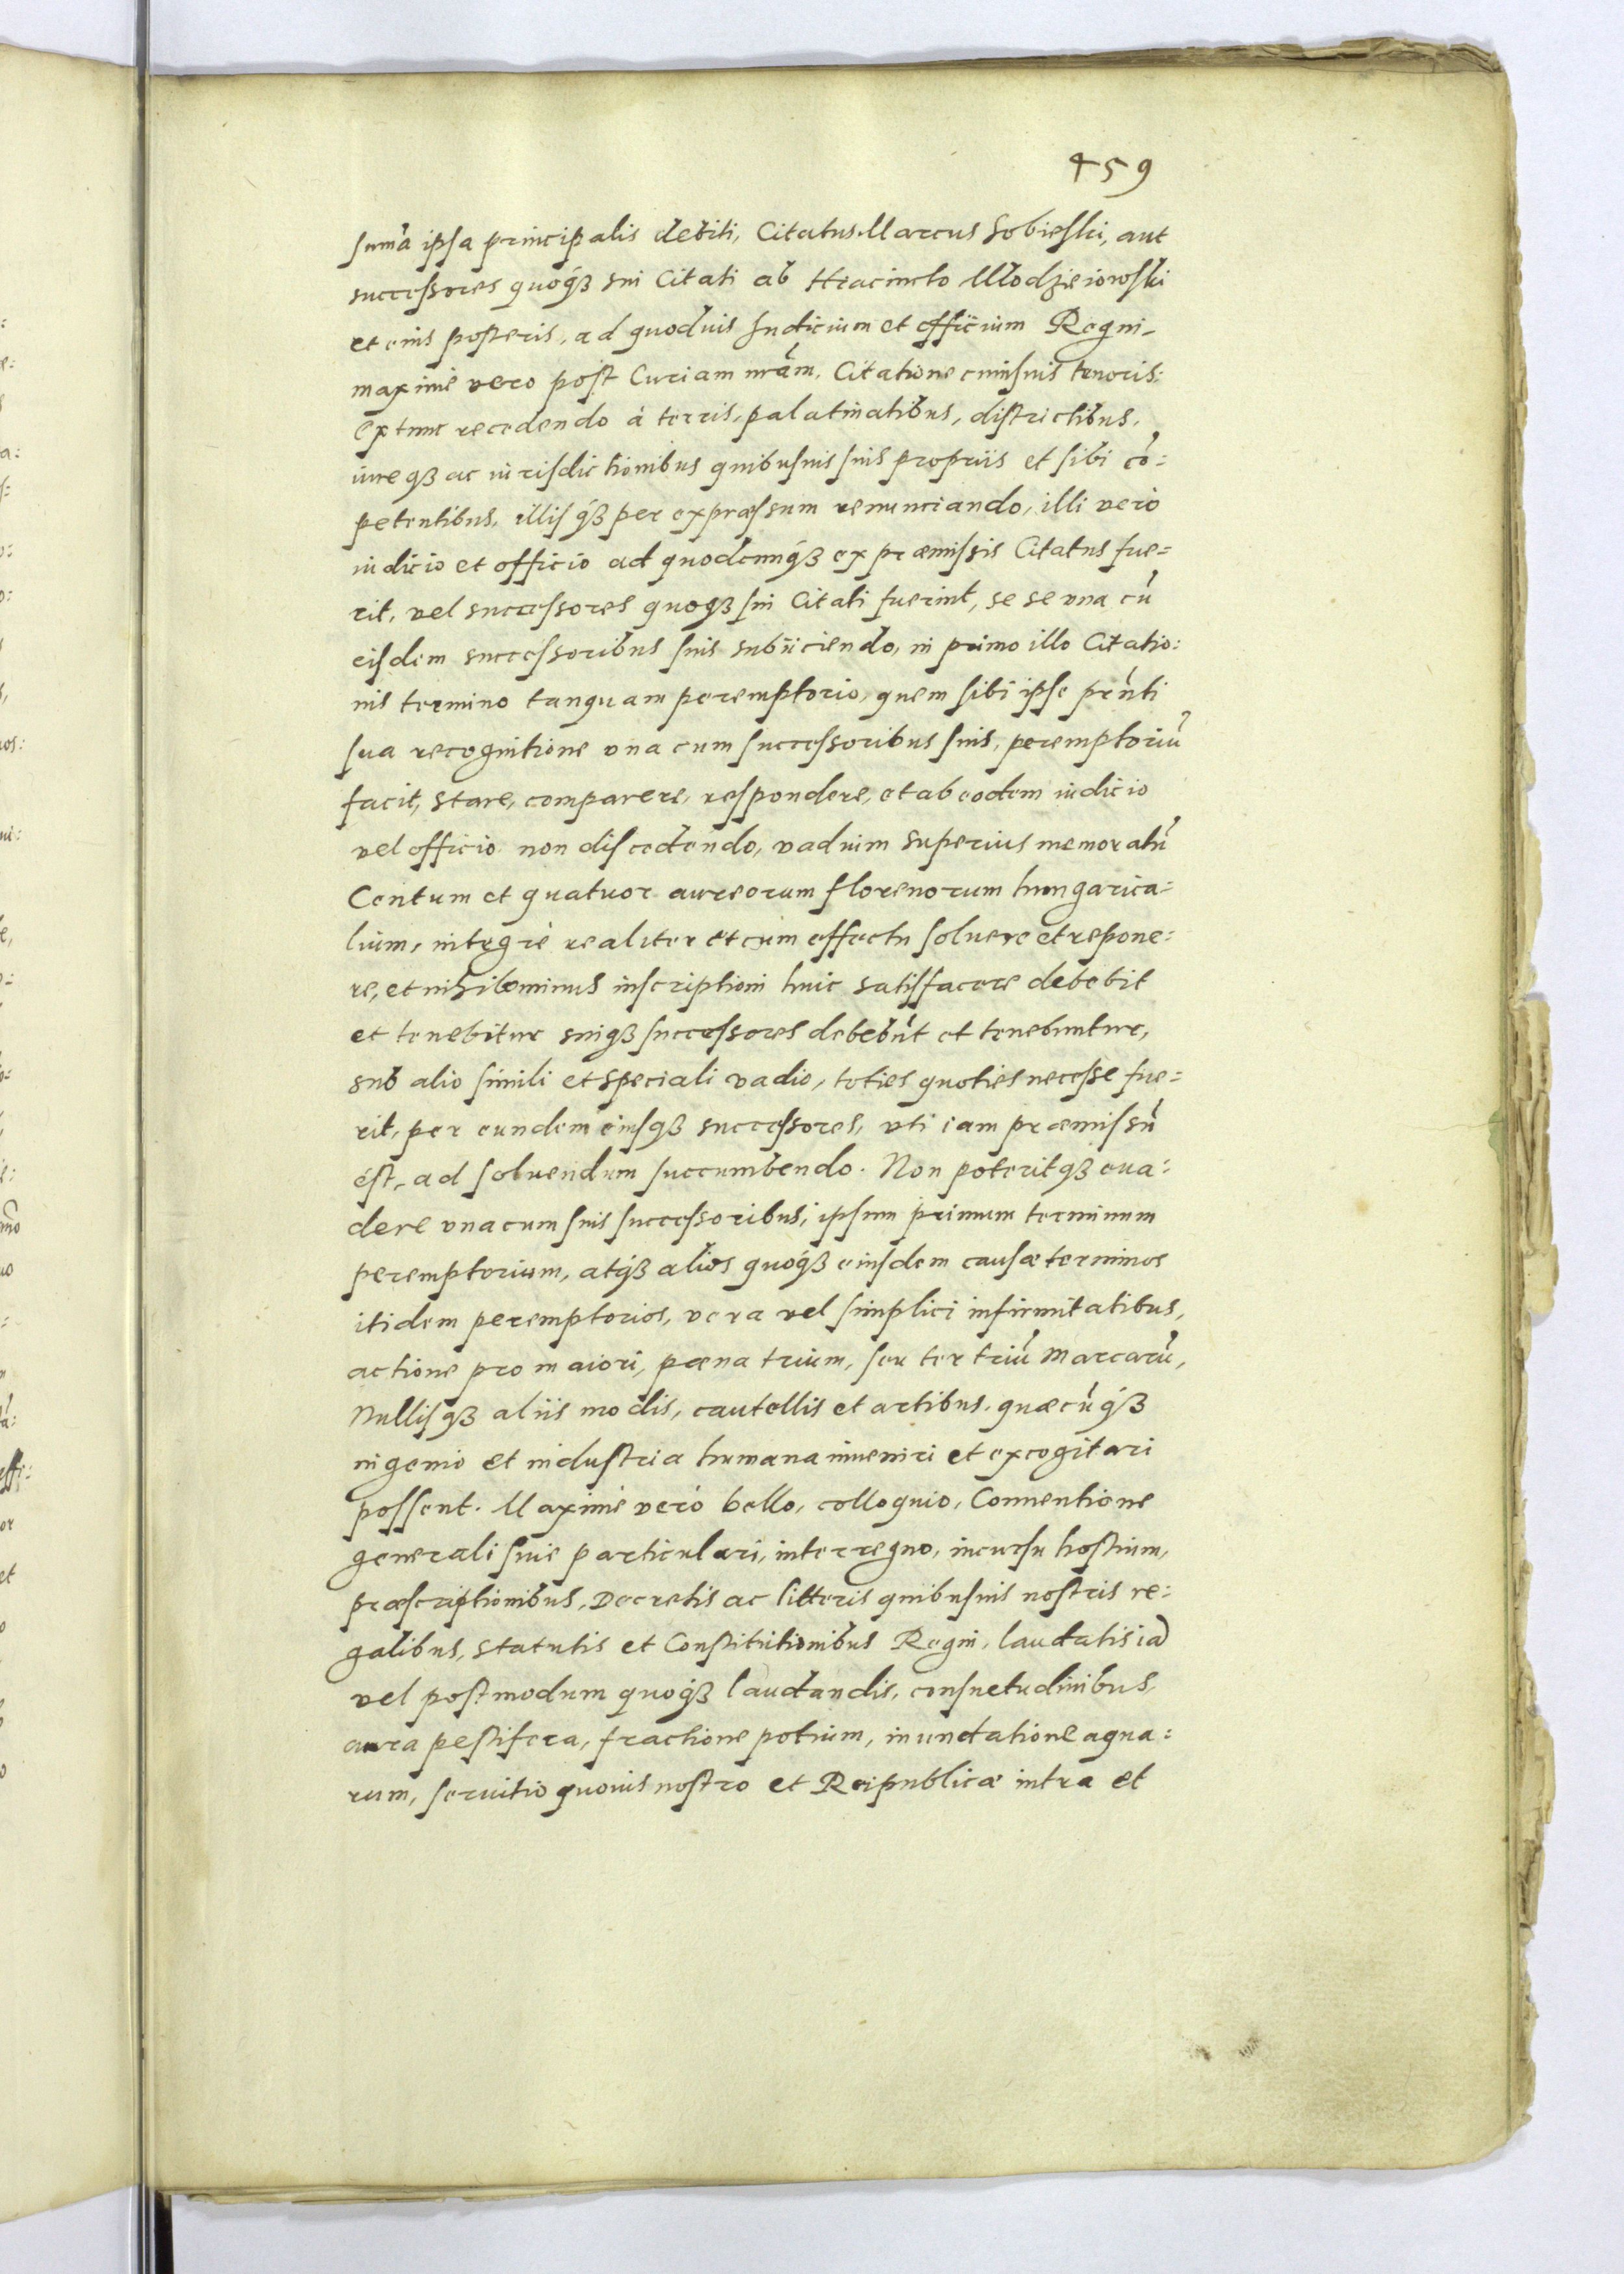 459
sum̃a ipsa principalis debiti, Citatus Marcus Sobieski, aut
successores quoqȝ sui Citati ab Hiacincto Mlodzieiowski
et eius posteris, ad quoduis Iudicium et officium Regni
maxime vero post Curiam nr̃am, Citatione cuiusuis tenoris:
extunc recedendo à terris, palatinatibus, districtibus,
iureqȝ ac iurisdictionibus quibusuis suis propriis et sibi cõ:
petentibus, illisqȝ per expressum renunciando, illi vero
iudicio et officio ad quodcunqȝ ex præmissis Citatus fue=
rit, vel successores quoqȝ sui Citati fuerint, se se vna cũ
eisdem successoribus suis subiiciendo, in primo illo Citatio:
nis termino tanquam peremptorio, quem sibi ipse prñti
sua recognitione vna cum successoribus suis, peremptoriũ
facit, stare, comparere, respondere, et ab eodem iudicio
vel officio non discedendo, vadium superius memoratũ
Centum et quatuor aureorum florenorum hungarica=
lium, integrè realiter et cum effectu soluere et repone:
re, et nihilominus inscriptioni huic satisfacere debebit
et tenebitur suiqȝ successores debebũt et tenebuntur,
sub alio simili et speciali vadio, toties quoties necesse fue=
rit, per eundem eiusqȝ successores, vti iam præmissũ
est, ad soluendum succumbendo. Non poteritqȝ eua:
dere vna cum suis successoribus, ipsum primum terminum
peremptorium, atqȝ alios quoqȝ eiusdem causæ terminos
itidem peremptorios, vera vel simplici infirmitatibus,
actione pro maiori, pæna trium, seu ter triũ marcarũ,
Nullisqȝ aliis modis, cautellis et artibus, quæcũqȝ
ingenio et industria humana inueniri et excogitari
possent. Maximè verò bello, colloquio, Conuentione
generali siue particulari, interregno, incursu hostium,
præscriptionibus, Decretis ac litteris quibusuis nostris re:
galibus, statutis et Constitutionibus Regni, laudatis iã
vel postmodum quoqȝ laudandis, consuetudinibus,
aura pestifera, fractione potium, inundatione aqua:
rum, seruitio quouis nostro et Reipublicæ intra et